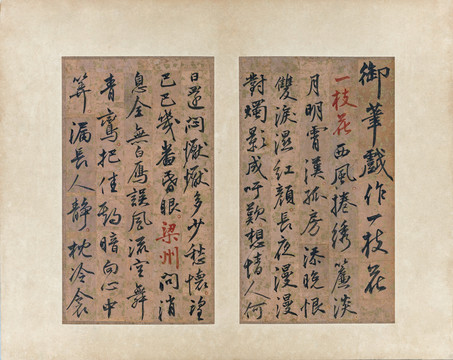 御筆戲作一枝花
一枝花西風捲綉簾淡
月明霄漢孤房添晚恨
雙淚濕紅顏長夜漫漫
對燭影成吁歎想情人何
日還悶懨懨多少愁懷望
巴巴幾番昏眼梁州問消
息全無白雁誤風流空舞
青鸞把佳期暗向心中
筭漏長人靜枕冷衾